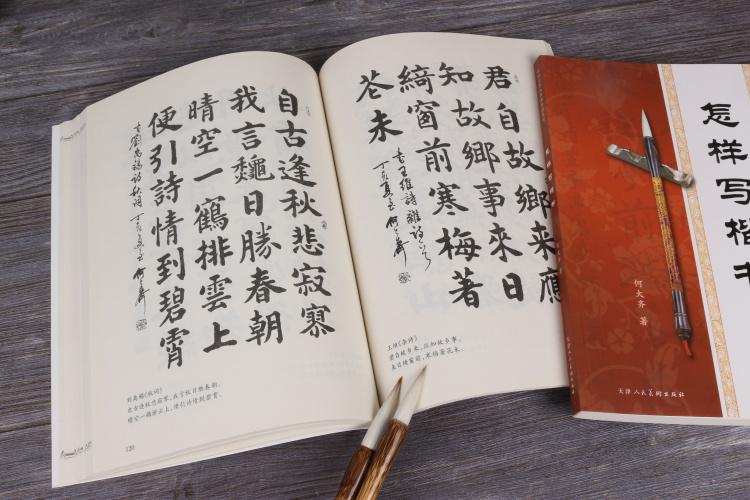 自古逢秋悲寂寥
我言龝日勝春朝
晴空一鶴排雲上
便引詩情到碧霄
刘禹锡《秋词》
自古逢秋悲寂寥，我言秋日胜春朝。
晴空一鹤排云上，便引诗情到碧霄。
120
君自故鄉來應
知故鄉事來日
綺窗前寒梅著
花未
王维《杂诗》
君自故乡来，应知故乡事。
来日绮窗前，寒梅著花未。
怎样写楷书
何大齐 著
天津人民美术出版社